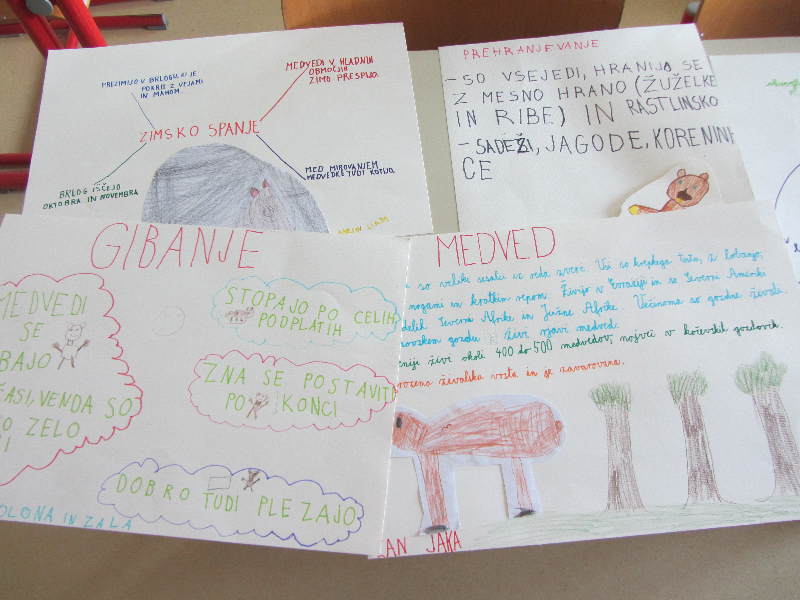 PREZIMIJO V BRLOGU, KI JE
POKRIT Z VEJAMI
IN MAHOM.
MEDVEDI V HLADNIH
OBMOČJIH
ZIMO PRESPIJO.
ZIMSKO SPANJE
BRLOG IŠČEJO
OKTOBRA IN NOVEMBRA
MED MIROVANJEM
MEDVEDKE TUDI KOTIJO.
PREHRANJEVANJE
- SO VSEJEDI, HRANIJO SE
Z MESNO HRANO (ŽUŽELKE
IN RIBE) IN RASTLINSKO
- SADEŽI, JAGODE, KORENINI
CE
GIBANJE
MEDVEDI
SE
BAJO
ČASI, VENDA SO
O ZELO
I
STOPAJO PO CELIH
PODPLATIH
ZNA SE POSTAVITI
PO KONCI
DOBRO TUDI PLEZAJO
OLONA IN ZALA
MEDVED
so veliki sesalci iz reda zveri. Vsi so krepkega telesa, z lobanjo,
nogami in kratkim repom. Živijo v Evraziji in se Severni Ameriki
delih Severne Afrike in Južne Afrike. Večinoma so gozdne živali
gozdu živi rjavi medved.
niji živi okoli 400 do 500 medvedov, največ v kočevskih gozdovih.
rožena živalska vrsta in je zavarovana.
AN JAKA